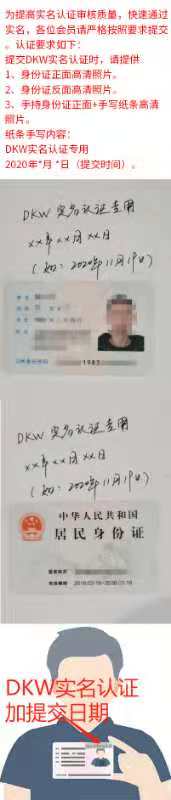 为提高实名认证审核质量，快速通过
实名，各位会员请严格按照要求提交
。认证要求如下：
提交DKW实名认证时，请提供
1、身份证正面高清照片。
2、身份证反面高清照片。
3、手持身份证正面+手写纸条高清
照片。
纸条手写内容：
DKW实名认证专用
2020年*月 *日（提交时间）。
DKW 实名认证专用
xx年xx月xx日
(如：2020年11月19日)
1983
DKW 实名认证专用
xx年xx月xx日
(如：2020年11月19日)
中华人民共和国
居民身份证
DKW实名认证
加提交日期